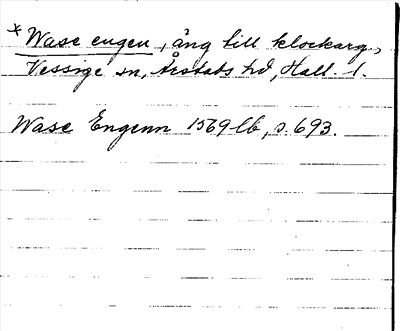 * Wase engen, äng till klockarg.,
Vessige sn, Årstads hd, Hall. l.
Wase Engenn 1569 lb, s. 693.